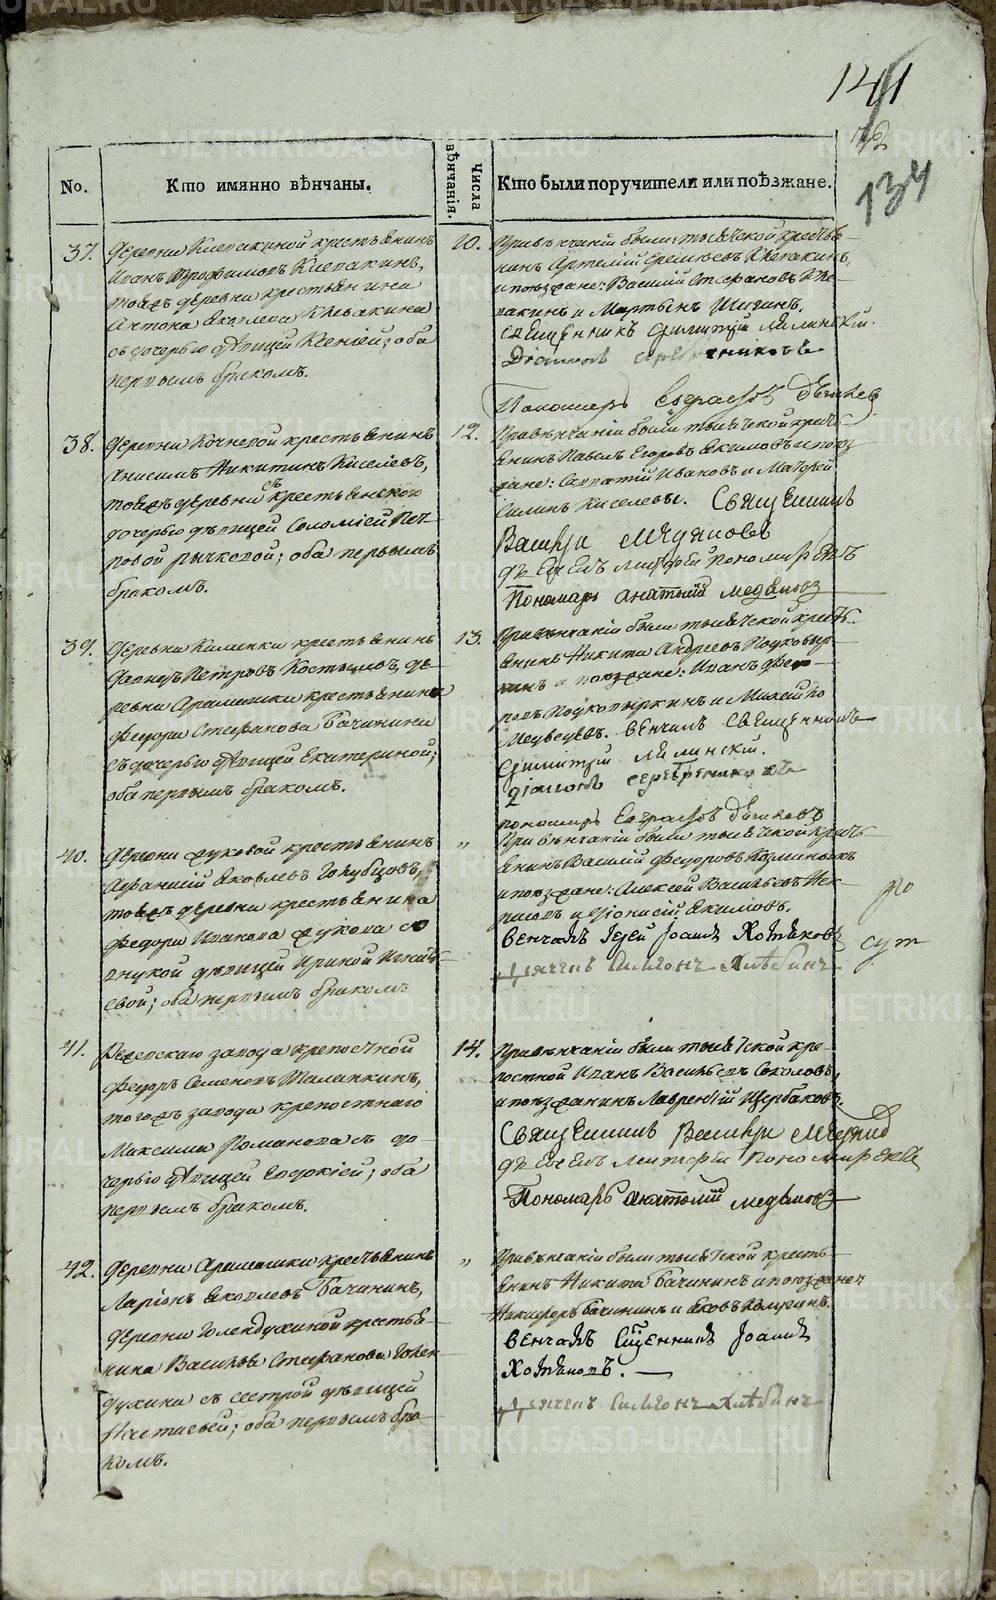 METRIKI.GASO-URAL.RU
141
134
No.
Кто имянно вѣнчаны.
Числа вѣнчанія.
Кто были поручители или поѣзжане.
37.
Деревни Клевакиной крестьянинъ
Иванъ Трофимовъ Клевакинъ,
тоежъ деревни крестьянина
Антона Яковлева Клевакина
съ дочерью дѣвицей Ксеніей; оба
первымъ бракомъ.
10.
При вѣнчаніи были: тысяческой крестья-
нинъ Артемій Еремѣевъ Клевакинъ,
и поѣзжане: Василій Стефановъ Кле-
вакинъ и Мартынъ Шигинъ.
Священникъ Димитрій
Діаконъ
Пономарь Евграфъ
38.
Деревни Кочневой крестьянинъ
Анисимъ Никитинъ Киселевъ,
тоежъ деревни съ крестьянскою
дочерью дѣвицей Соломіей Пет-
ровой Рычковой; оба первымъ
бракомъ.
12.
При вѣнчаніи были: тысяческой крестья-
янинъ Павелъ Егоровъ Екимовъ и поѣз-
жане: Ипатій Ивановъ и Матфей
Силинъ Киселевы. Священникъ
Василій
Пономарь Анатолій Медвѣдевъ
39.
Деревни Каменки крестьянинъ
Давидъ Петровъ Костылевъ, де-
ревни Арамашки крестьянина
Федора Стефанова Бачинина
съ дочерью дѣвицей Екатериной;
оба первымъ бракомъ.
13.
При вѣнчаніи были тысяческой кресть-
янинъ Никита Андреевъ Подковыр-
кинъ и поѣзжане: Иванъ Фео-
ровъ Подковыркинъ и Михайло
Медведевъ. Венчалъ Священникъ
Димитрій
Діаконъ Серебрениковъ
пономарь Евграфъ
40.
Деревни Жуковой крестьянинъ
Афанасій Яковлевъ Голубцовъ,
тоежъ деревни крестьянина
Федора Иванова Жукова со
внукой дѣвицей Ириной Игнать-
евой; оба первымъ бракомъ
"
При вѣнчаніи были тысяческой кресть-
янинъ Василій Федоровъ Кузминыхъ
и поѣзжане: Алексей Васильевъ
и Діонисій Екимовъ.
Венчалъ Іерей Іоаннъ Хотѣновъ
Дьячекъ Симеонъ Хлѣбинъ
41.
Режевскаго завода крепостной
Федоръ Семеновъ Маланкинъ,
тогожъ завода крепостнаго
Максима Романова съ до-
черью дѣвицей Евдокіей; оба
первымъ бракомъ.
14.
При вѣнчаніи были тысяческой кре-
постной Иванъ Васильевъ Соколовъ,
и поѣзжанинъ Лаврентій Щербаковъ.
Священникъ Василій
Пономарь Анатолій Медвѣдевъ
42.
Деревни Арамашки крестьянинъ
Ларіонъ Яковлевъ Бачининъ,
деревни Голендухиной крестья-
нина Василья Стефанова Голен-
духина съ сестрой дѣвицей
Настасьей; оба первымъ бра-
комъ.
"
При вѣнчаніи были тысяческой кресть-
янинъ Никита Бачининъ и поѣзжане:
Никифоръ Бачининъ и Яковъ
Венчалъ Священникъ Іоаннъ
Хотѣновъ.
Дьячекъ Симеонъ Хлѣбинъ